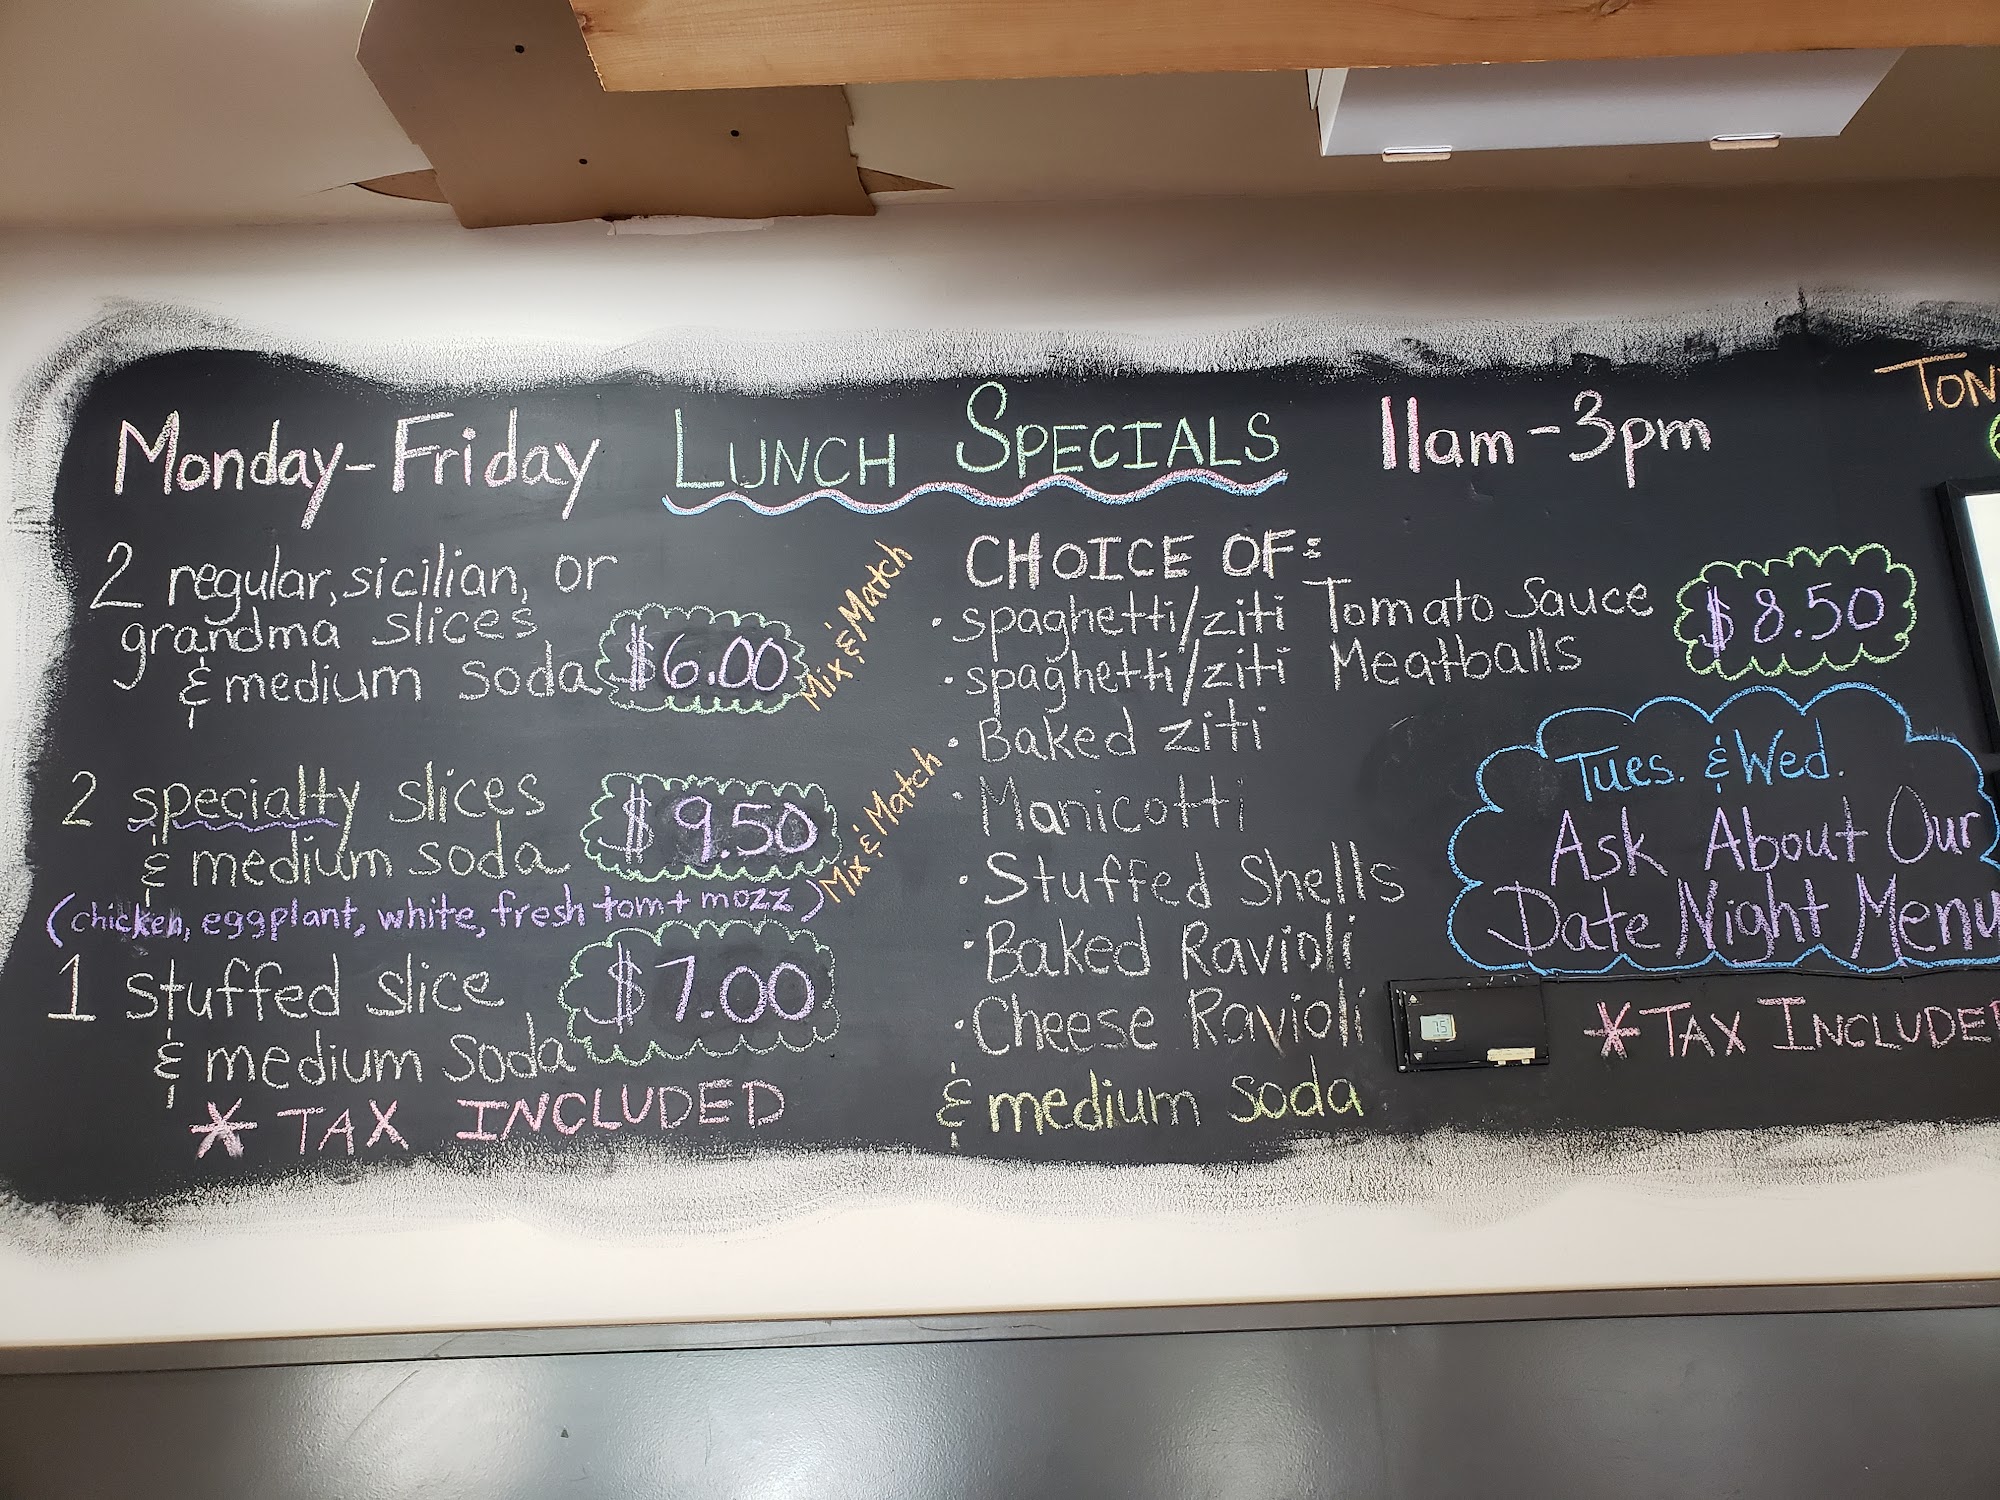 Monday-Friday LUNCH SPECIALS 11am-3pm
2 regular, sicilian, or
grandma slices
& medium soda $6.00
Mix & Match
2 specialty slices
& medium soda $9.50
(chicken, eggplant, white, fresh tom + mozz)
Mix & Match
1 stuffed slice
& medium soda $7.00
* TAX INCLUDED
CHOICE OF:
• spaghetti/ziti Tomato Sauce
• spaghetti/ziti Meatballs
$8.50
• Baked ziti
• Manicotti
• Stuffed Shells
• Baked Ravioli
• Cheese Ravioli
& medium soda
Tues. & Wed.
Ask About Our
Date Night Menu
* TAX INCLUDED
15